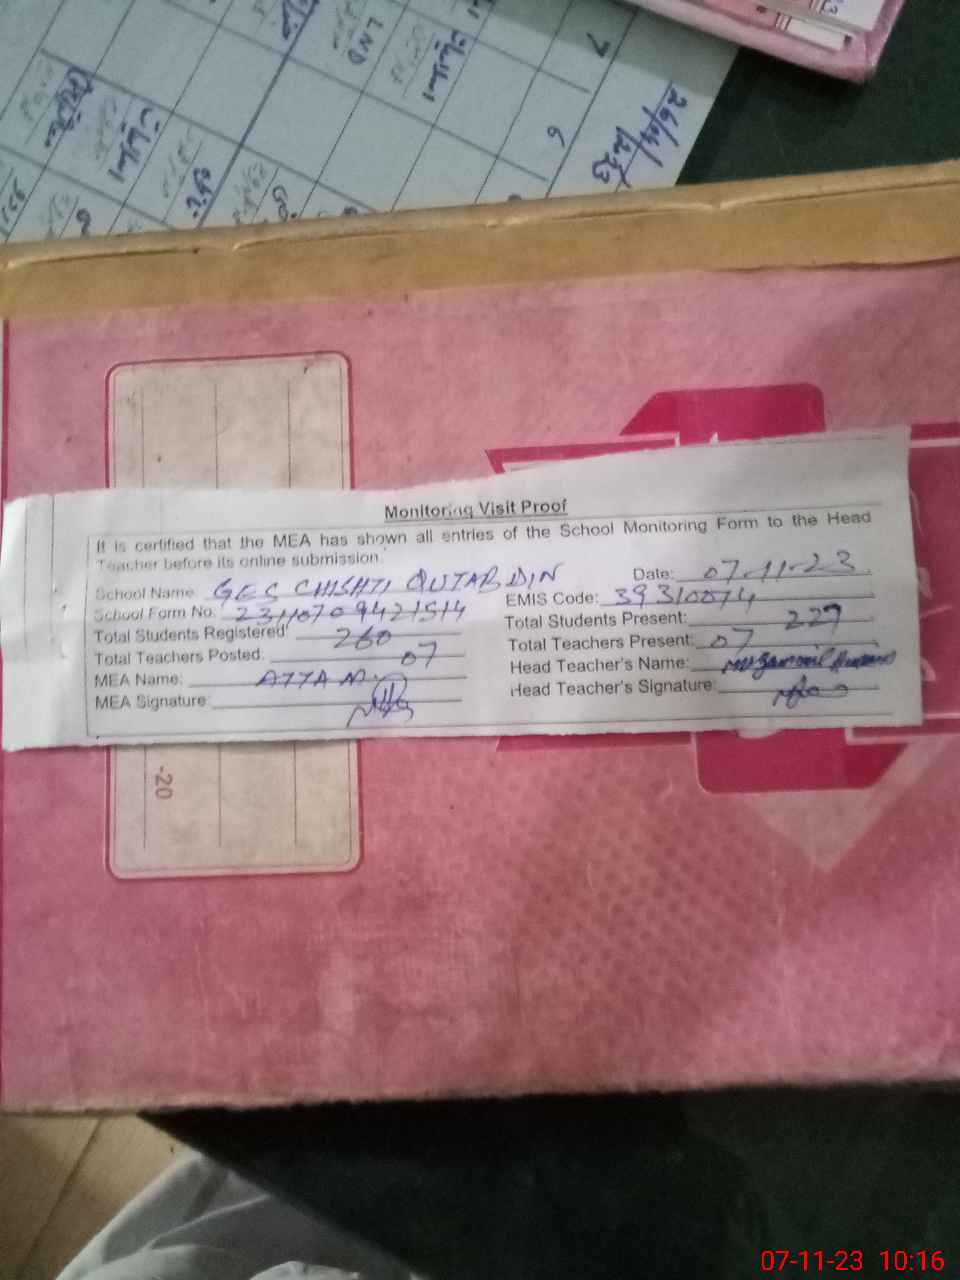 LND
اسلامیات
7
6
26/04/2023
اسلامیات
Monitoring Visit Proof
It is certified that the MEA has shown all entries of the School Monitoring Form to the Head
Teacher before its online submission.
School Name: GES CHISHTI QUTAB DIN Date: 07-11-23
School Form No: 23110709421514 EMIS Code: 39310074
Total Students Registered: 260 Total Students Present: 227
Total Teachers Posted: 07 Total Teachers Present: 07
MEA Name: ATTA M. Head Teacher's Name: Muzammil
MEA Signature: Head Teacher's Signature:
-20
07-11-23 10:16